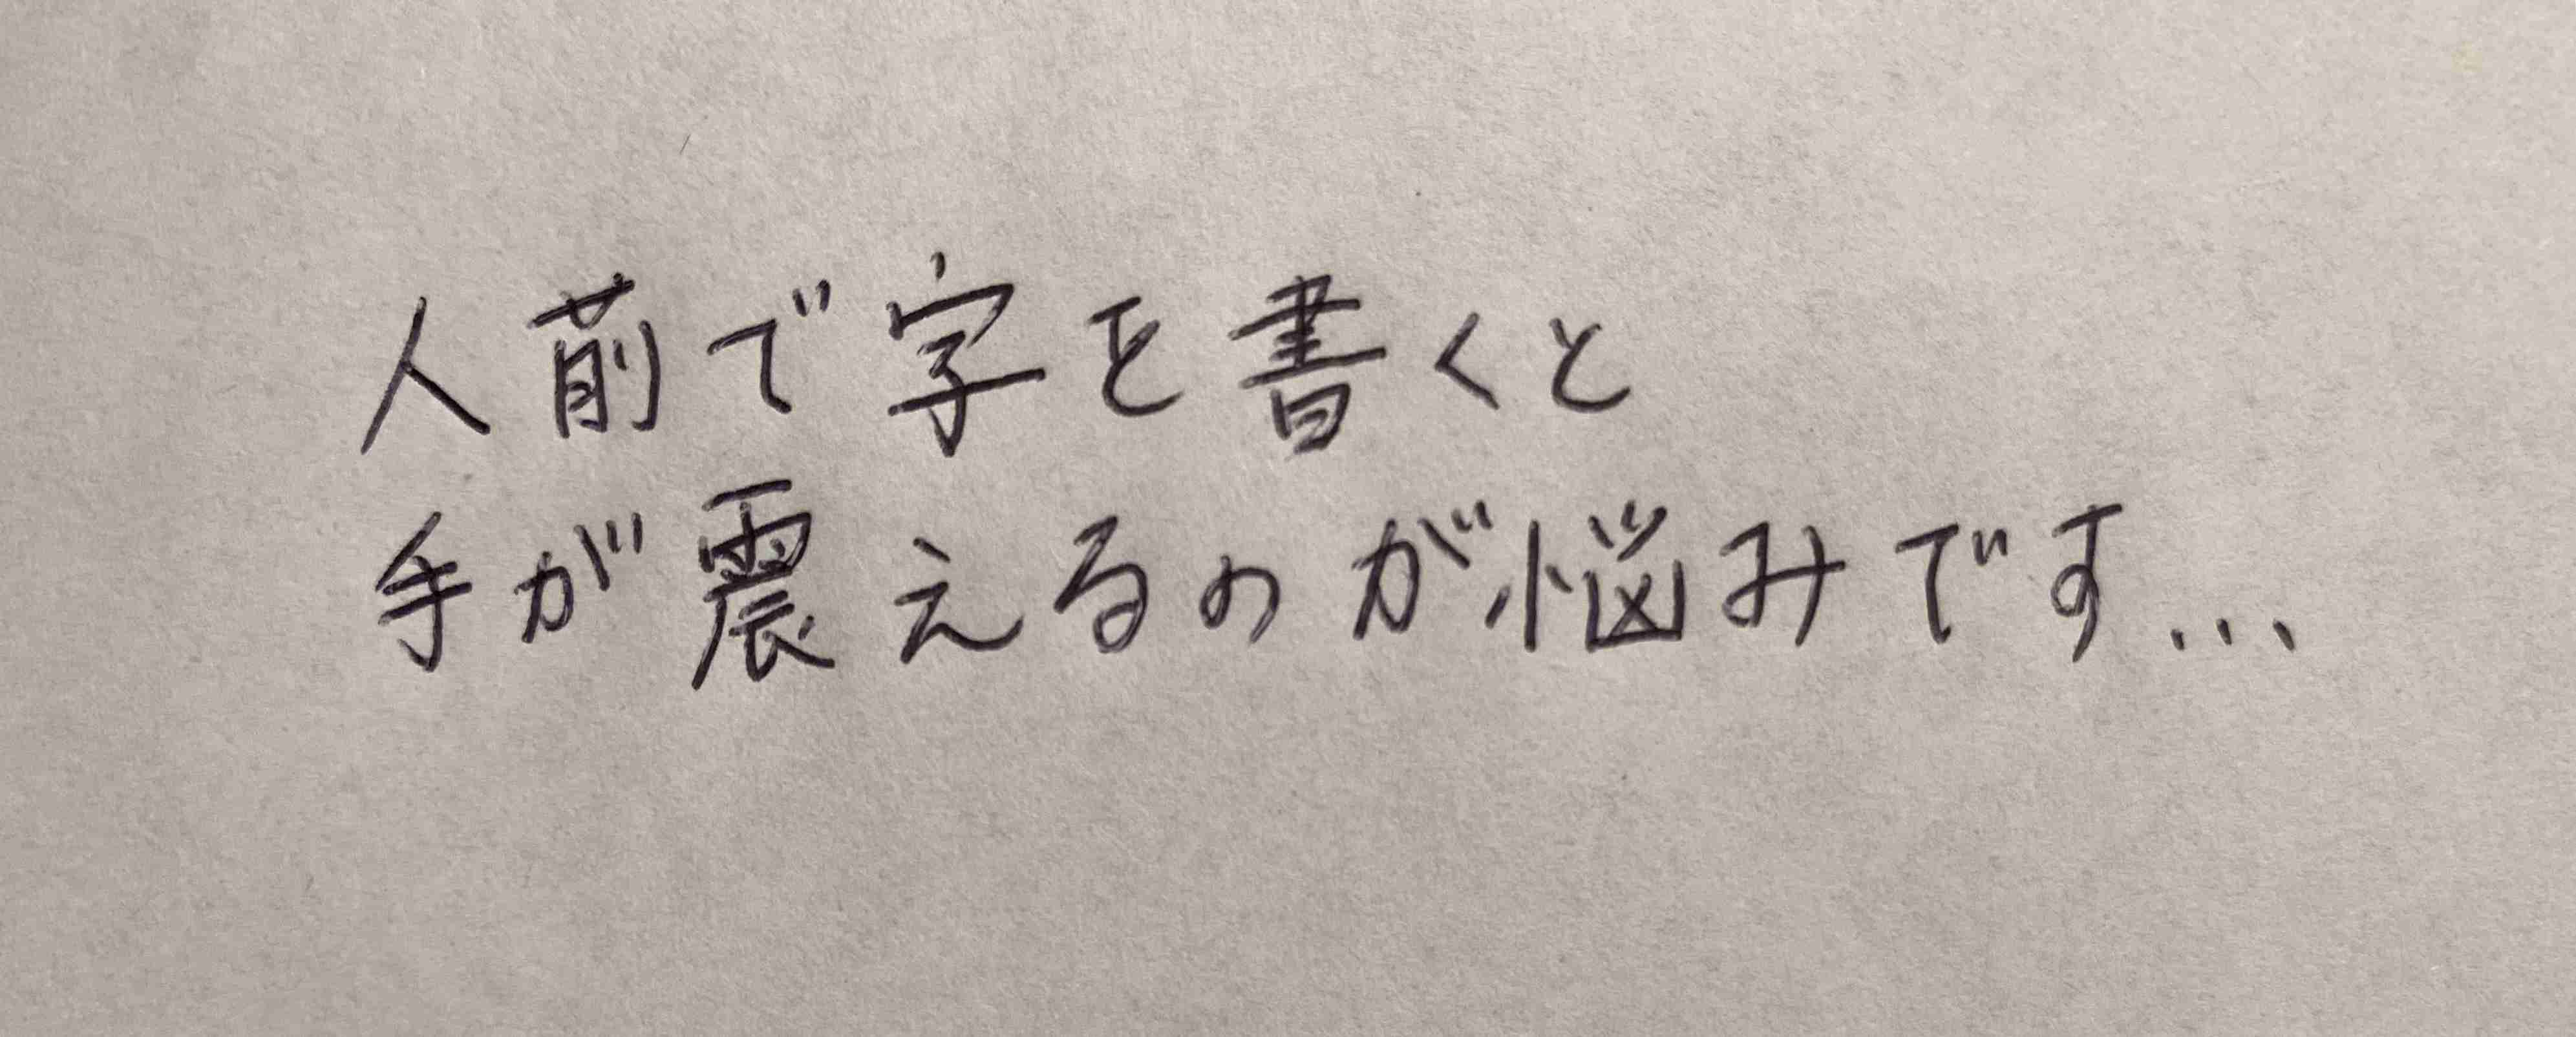 人前で字を書くと
手が震えるのが悩みです...